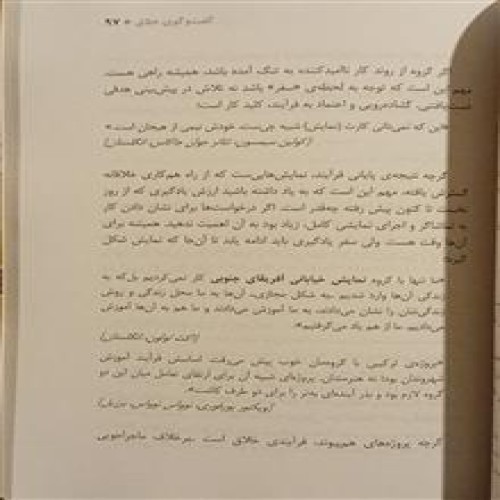 گفت‌وگوی خلاق ° ۹۷
اگر گروه از روند کار ناامیدکننده به تنگ آمده باشد، همیشه راهی هست.
مهم این است که توجه به لحظه‌ی «سفر» باشد نه تلاش در پیش‌بینی هدفی
دست‌یافتنی. گشاده‌رویی و اعتماد به فرآیند، کلید کار است:
«این که نمی‌دانی کارت (نمایش) شبیه چی‌ست، خودش نیمی از هیجان است.»
(کولین سیمسون، تئاتر جوان، انگلستان)
گرچه نتیجه‌ی پایانی فرآیند، نمایش‌هایی‌ست که از راه هم‌کاری خلاقانه
گسترش یافته، مهم این است که به یاد داشته باشید ارزش یادگیری که از روز
نخست تا کنون پیش رفته چه‌قدر است. اگر درخواست‌ها برای نشان دادن کار
به تماشاگر و اجرای نمایشی کامل، زیاد بود به آن اهمیت ندهید. همیشه برای
آن‌ها وقت هست. ولی سفر یادگیری باید ادامه یابد تا آن‌جا که نمایش شکل
گیرد:
«ما تنها با گروه نمایش خیابانی آفریقای جنوبی کار نمی‌کردیم بل‌که به
زندگی آن‌ها وارد شدیم ـ به شکل مجازی. آن‌ها به ما محل زندگی و روش
زندگی‌شان را نشان می‌دادند، به ما آموزش می‌دادند و ما هم به آن‌ها آموزش
می‌دادیم. ما از هم یاد می‌گرفتیم.»
انگلستان)
«پروژه‌ی ترکیبی با گروه‌مان خوب پیش می‌رفت. اساسش فرآیند آموزش
شهروندان بود؛ نه هنرمندان. پروژه‌های شبیه آن برای ارتقای تعامل میان این دو
گروه لازم بود و بذر آینده‌ای به‌تر را برای دو طرف کاشت.»
برزیل)
گرچه پروژه‌های هم‌پیوند، فرآیندی خلاق است ـ برخلاف ماجراجویی